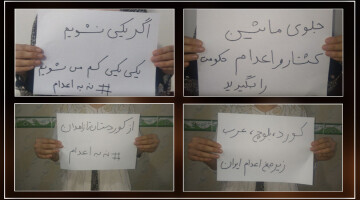 جلوی ماشین
کشتار و اعدام حکومتی
را بگیرید
اگر یکی نشویم
یکی یکی کم می شویم
# نه به اعدام
کورد، بلوچ، عرب
زیر تیغ اعدام ایران
از کوردستان تا زاهدان
# نه به اعدام